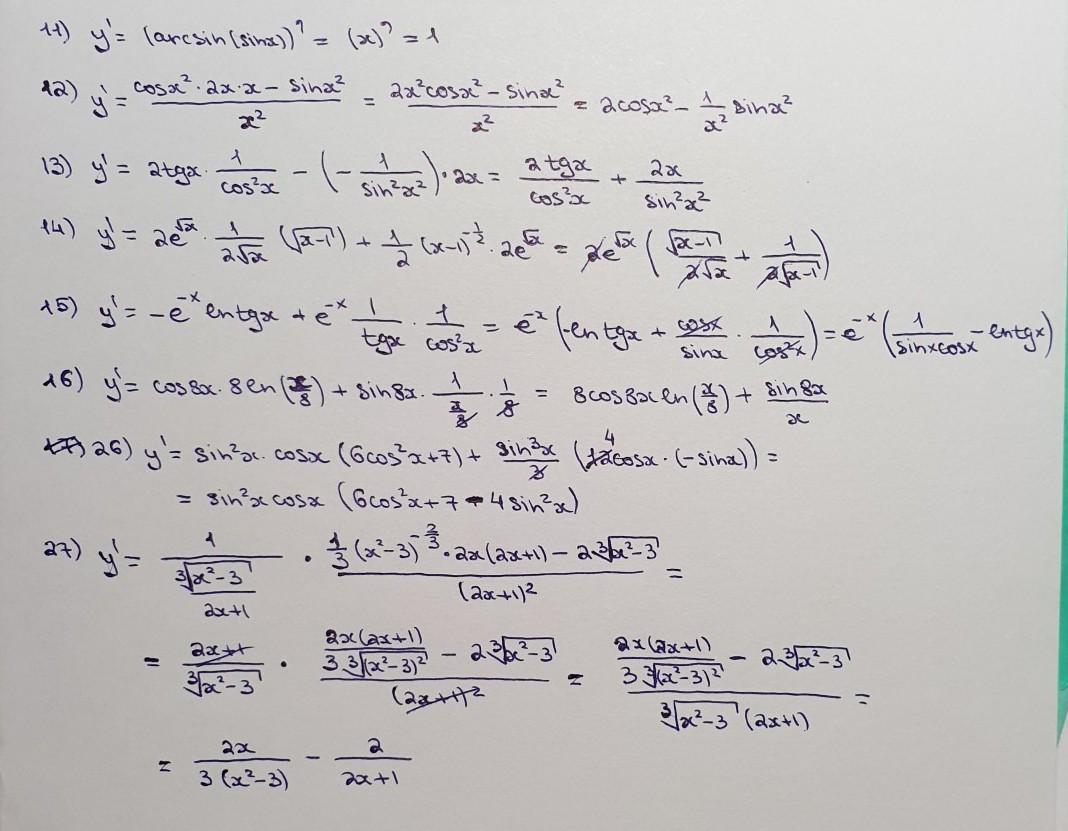 11) y' = (arcsin(sinx))' = (x)' = 1
12) y' = (cosx²·2x·x − sinx²)/x² = (2x²cosx² − sinx²)/x² = 2cosx² − 1/x² sinx²
13) y' = 2tgx·1/cos²x − (−1/sin²x²)·2x = 2tgx/cos²x + 2x/sin²x²
14) y' = 2e^√x · 1/(2√x) (√(x−1)) + 1/2 (x−1)^(-1/2) · 2e^√x = 2e^√x (√(x−1)/(2√x) + 1/(2√(x−1)))
15) y' = −e^(-x) ln tgx + e^(-x) 1/tgx · 1/cos²x = e^(-x) (−ln tgx + cosx/sinx · 1/cos²x) = e^(-x) (1/(sinxcosx) − ln tgx)
16) y' = cos8x·8ln(x/8) + sin8x · 1/(x/8) · 1/8 = 8cos8x ln(x/8) + sin8x/x
17) 26) y' = sin²x·cosx (6cos²x+7) + sin³x/3 (12 4 cosx·(−sinx)) =
= sin²x cosx (6cos²x+7 − 4sin²x)
27) y' = 1/(∛(x²−3)/(2x+1)) · (1/3 (x²−3)^(-2/3) · 2x(2x+1) − 2∛(x²−3))/(2x+1)² =
= (2x+1)/∛(x²−3) · (2x(2x+1)/(3∛(x²−3)²) − 2∛(x²−3))/(2x+1)² = (2x(2x+1)/(3∛(x²−3)²) − 2∛(x²−3))/(∛(x²−3) (2x+1)) =
= 2x/(3(x²−3)) − 2/(2x+1)